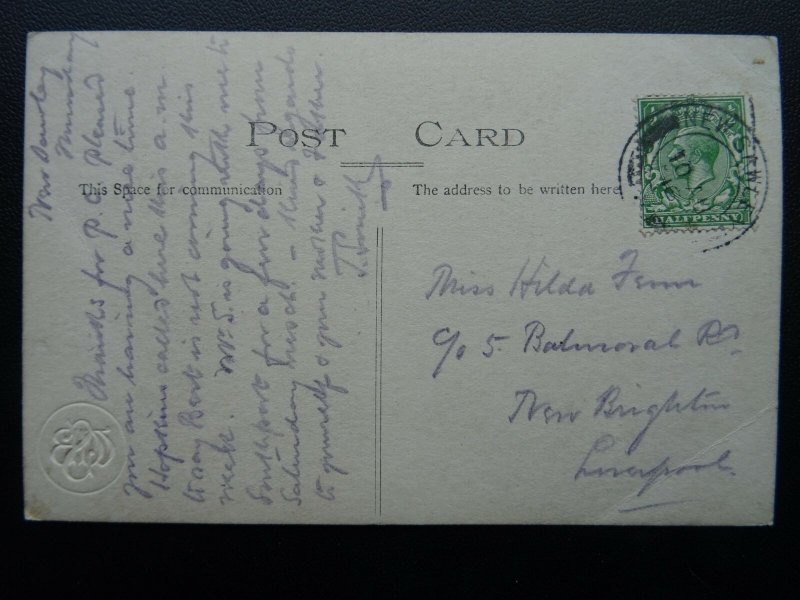 POST CARD
This Space for communication
The address to be written here
NEW DAWLEY
HALFPENNY
New Dawley
Thursday
Thanks for P.C. pleased
you are having a nice time.
Hopkins called here this a.m.
to say Bert is not coming this
week. Mr S. is going with me to
Southport for a few days from
Saturday next. – Kind regards
to yourself & your mother & Father.
J. Smith
Miss Hilda Fenn
c/o 5. Balmoral Rd
New Brighton
Liverpool